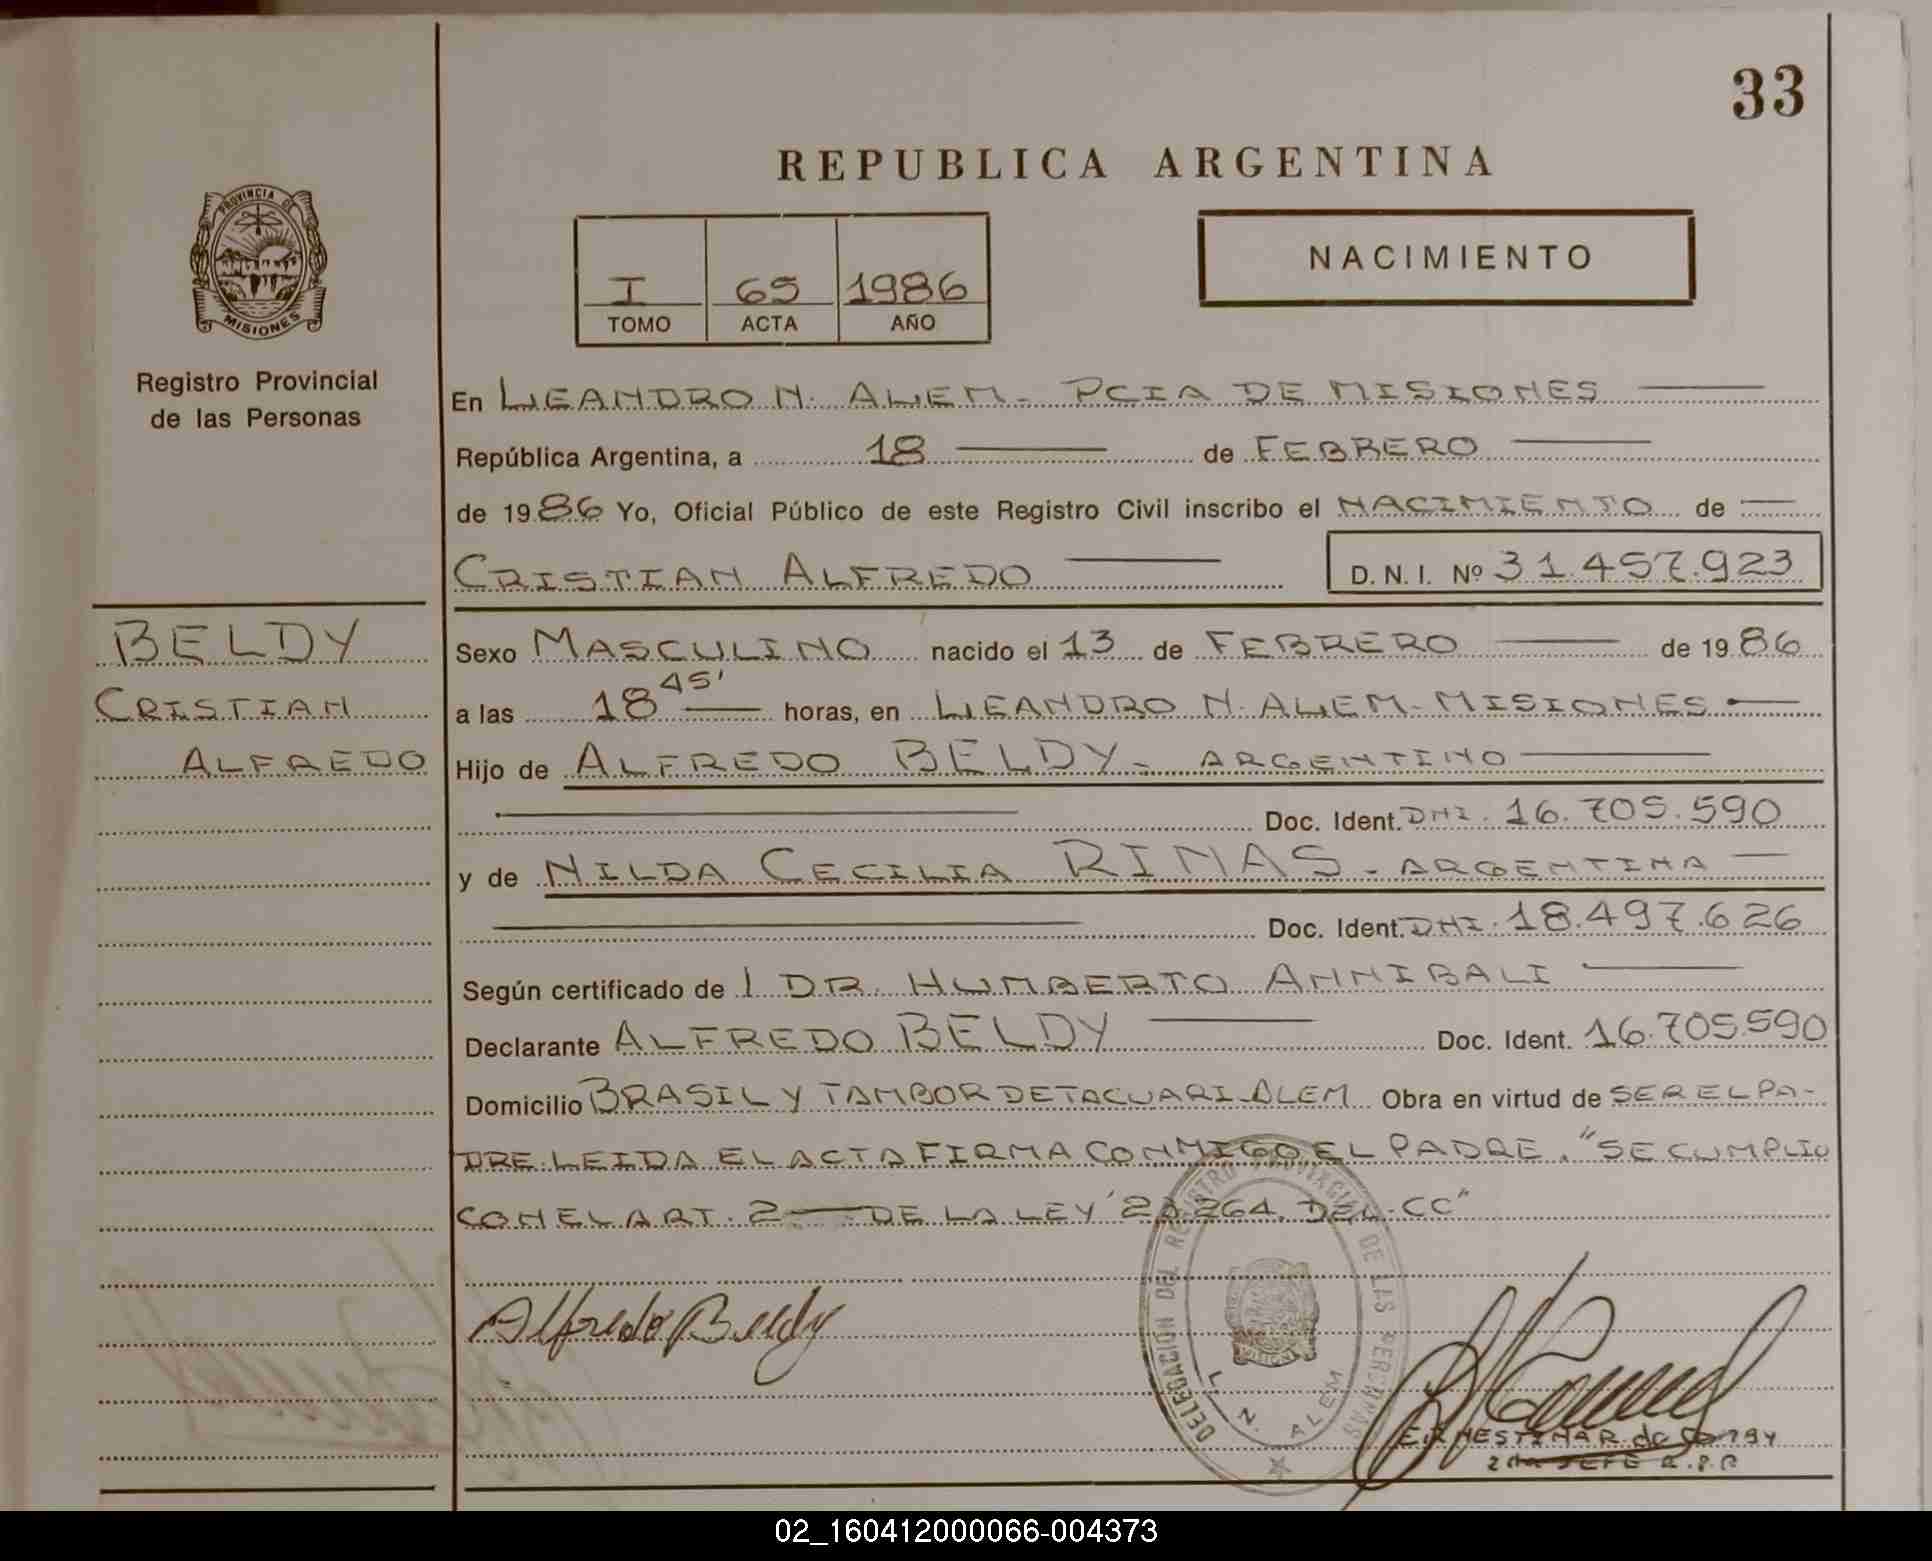 33
REPUBLICA ARGENTINA
PROVINCIA DE
MISIONES
I 65 1986
TOMO ACTA AÑO
NACIMIENTO
Registro Provincial
de las Personas
En LEANDRO N. ALEM - PCIA DE MISIONES
República Argentina, a 18 de FEBRERO
de 1986 Yo, Oficial Público de este Registro Civil inscribo el NACIMIENTO de
CRISTIAN ALFREDO D. N. I. Nº 31.457.923
BELDY
CRISTIAN
ALFREDO
Sexo MASCULINO nacido el 13 de FEBRERO de 1986
a las 18 45' horas, en LEANDRO N. ALEM - MISIONES
Hijo de ALFREDO BELDY - ARGENTINO
Doc. Ident. DNI. 16.705.590
y de NILDA CECILIA RINAS - ARGENTINA
Doc. Ident. DNI. 18.497.626
Según certificado de l DR. HUMBERTO ANNIBALI
Declarante ALFREDO BELDY Doc. Ident. 16.705.590
Domicilio BRASIL Y TAMBOR DE TACUARI - ALEM Obra en virtud de SER EL PA-
DRE. LEIDA EL ACTA FIRMA CONMIGO EL PADRE. "SE CUMPLIO
CON EL ART. 2 DE LA LEY 23.264. DEL CC"
Alfredo Beldy
DELEGACIÓN DEL REGISTRO PROVINCIAL DE LAS PERSONAS
L. N. ALEM
JEFE R.P.P
02_160412000066-004373